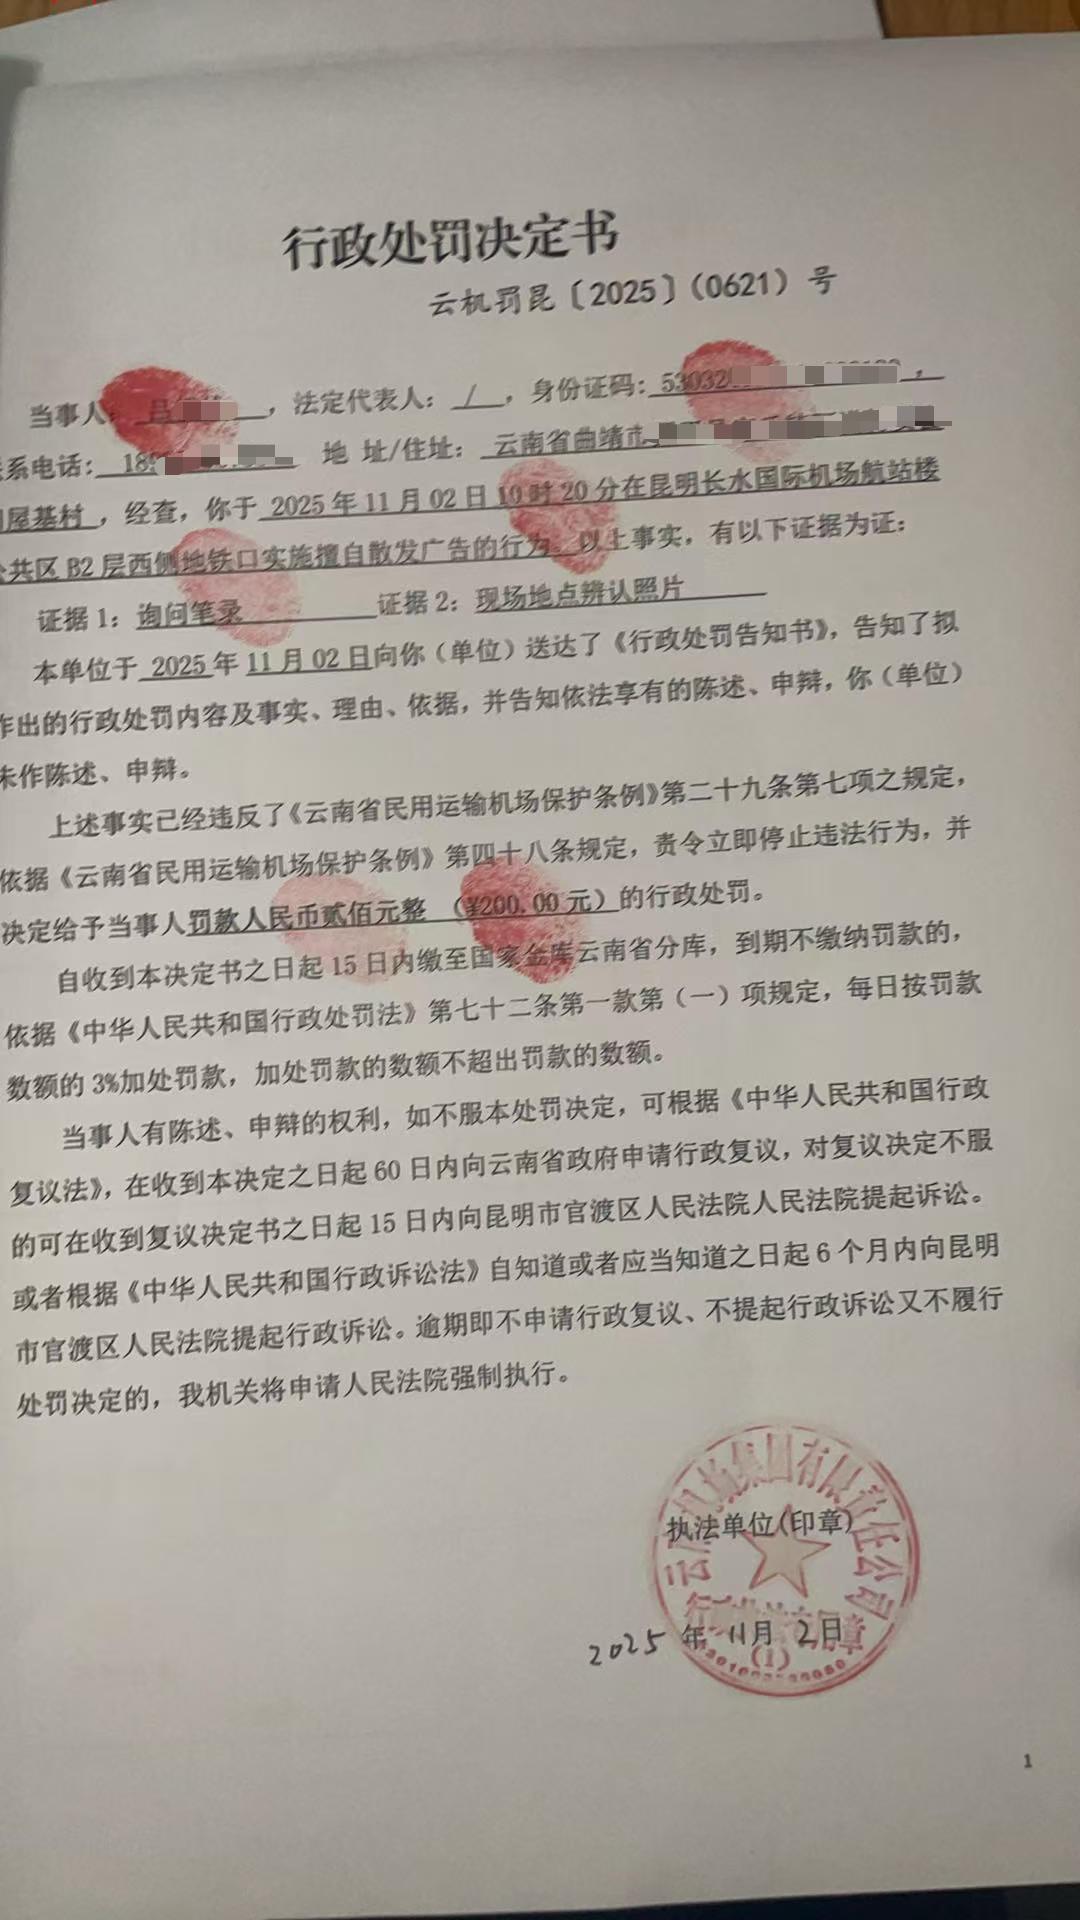 行政处罚决定书
云机罚昆〔2025〕(0621)号
当事人: 吕，法定代表人: /，身份证码: 53032，
系电话: 18 地 址/住址: 云南省曲靖市
屋基村，经查，你于 2025 年 11 月 02 日 10 时 20 分在昆明长水国际机场航站楼
共区 B2 层西侧地铁口实施擅自散发广告的行为。以上事实，有以下证据为证:
证据 1: 询问笔录 证据 2: 现场地点辨认照片
本单位于 2025 年 11 月 02 日向你（单位）送达了《行政处罚告知书》，告知了拟
作出的行政处罚内容及事实、理由、依据，并告知依法享有的陈述、申辩，你（单位）
未作陈述、申辩。
上述事实已经违反了《云南省民用运输机场保护条例》第二十九条第七项之规定，
依据《云南省民用运输机场保护条例》第四十八条规定，责令立即停止违法行为，并
决定给予当事人罚款人民币贰佰元整（¥200.00 元）的行政处罚。
自收到本决定书之日起 15 日内缴至国家金库云南省分库，到期不缴纳罚款的，
依据《中华人民共和国行政处罚法》第七十二条第一款第（一）项规定，每日按罚款
数额的 3%加处罚款，加处罚款的数额不超出罚款的数额。
当事人有陈述、申辩的权利，如不服本处罚决定，可根据《中华人民共和国行政
复议法》，在收到本决定之日起 60 日内向云南省政府申请行政复议，对复议决定不服
的可在收到复议决定书之日起 15 日内向昆明市官渡区人民法院人民法院提起诉讼。
或者根据《中华人民共和国行政诉讼法》自知道或者应当知道之日起 6 个月内向昆明
市官渡区人民法院提起行政诉讼。逾期即不申请行政复议、不提起行政诉讼又不履行
处罚决定的，我机关将申请人民法院强制执行。
云 机场集团有限责任公司
执法单位(印章)
2025 年 11月 2日
章
(1)
1